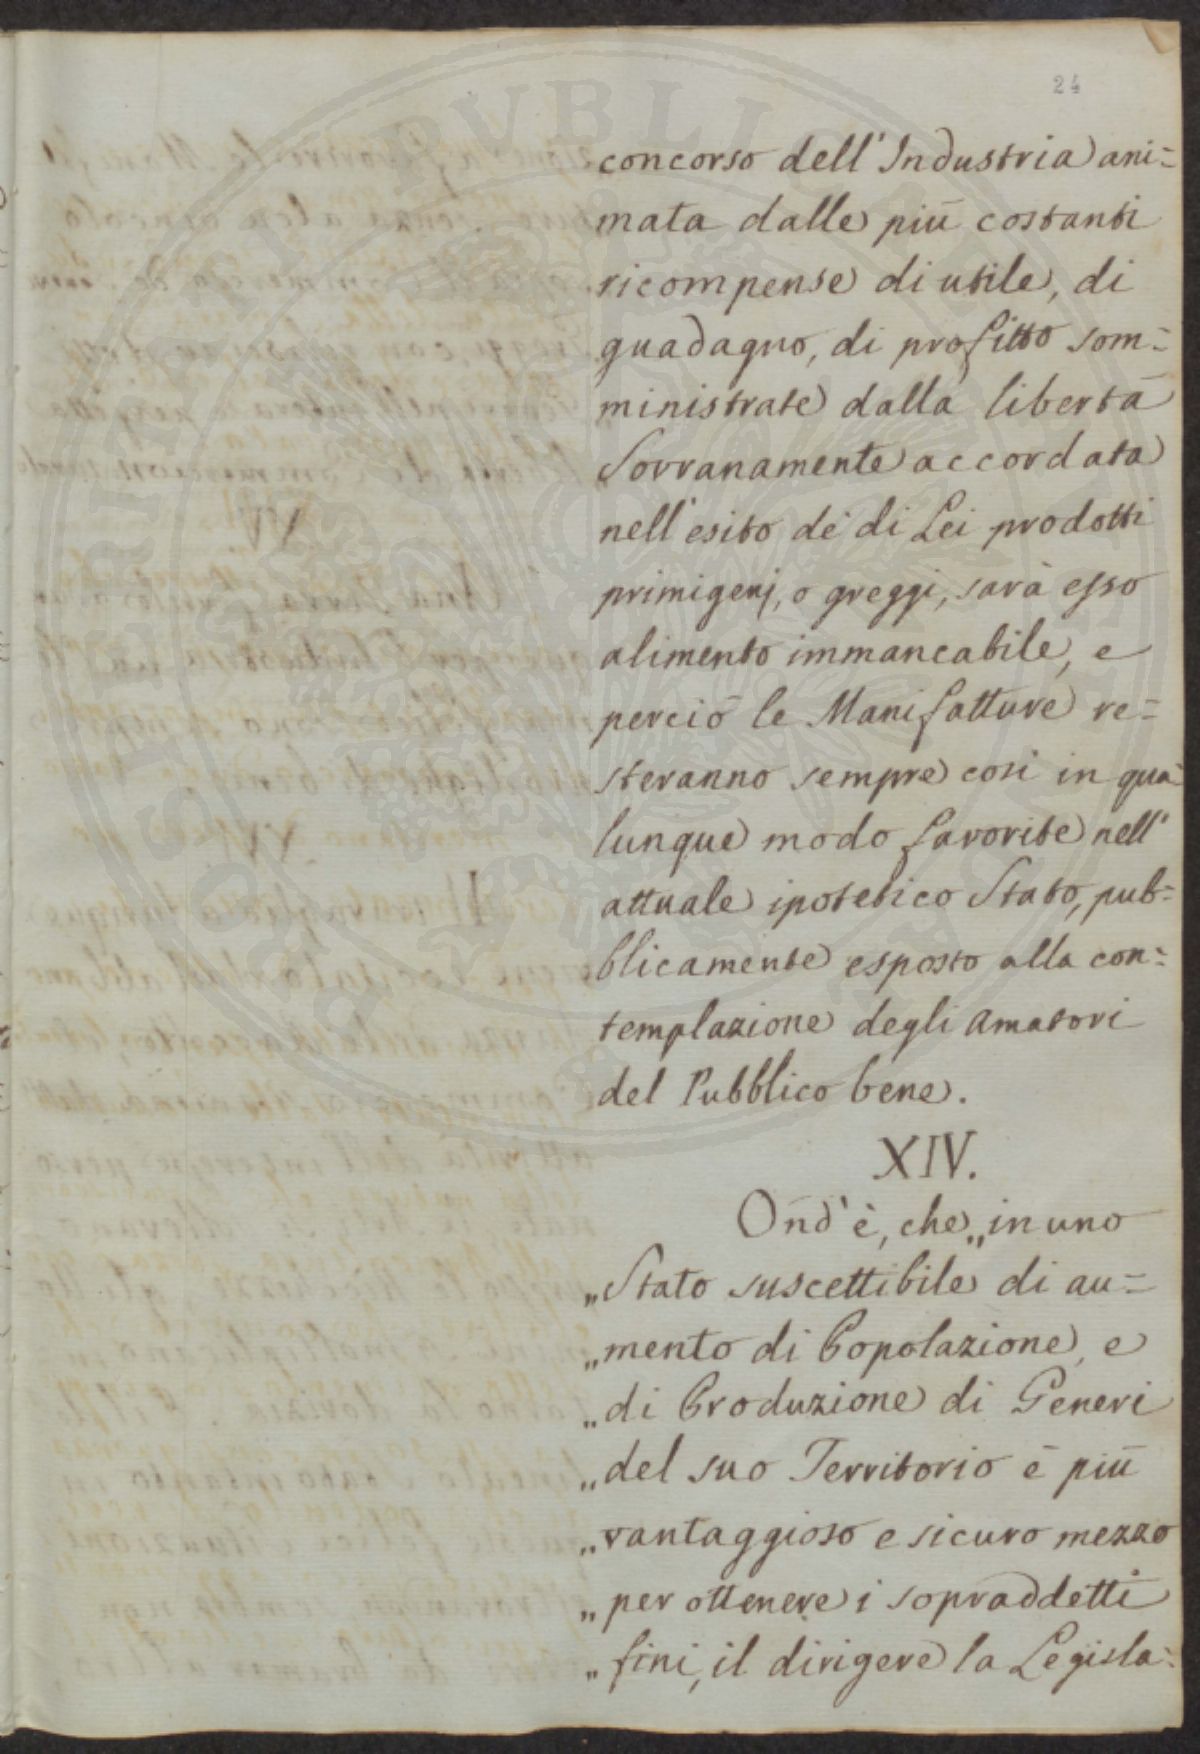 24
concorso dell'Industria ani=
mata dalle più costanti
ricompense di utile, di
guadagno, di profitto som=
ministrate dalla libertà
Sovranamente accordata
nell'esito de' di Lei prodotti
primigenj, o greggi, sarà esso
alimento immancabile, e
perciò le Manifatture re=
steranno sempre così in qua
lunque modo favorite nell'
attuale ipotetico Stato, pub=
blicamente esposto alla con=
templazione degli Amatori
del Pubblico bene.
XIV.
Ond'è, che „in uno
„Stato suscettibile di au=
„mento di Popolazione, e
„di Produzione di Generi
„del suo Territorio è più
„vantaggioso e sicuro mezzo
„per ottenere i sopraddetti
„fini, il dirigere la Legisla=